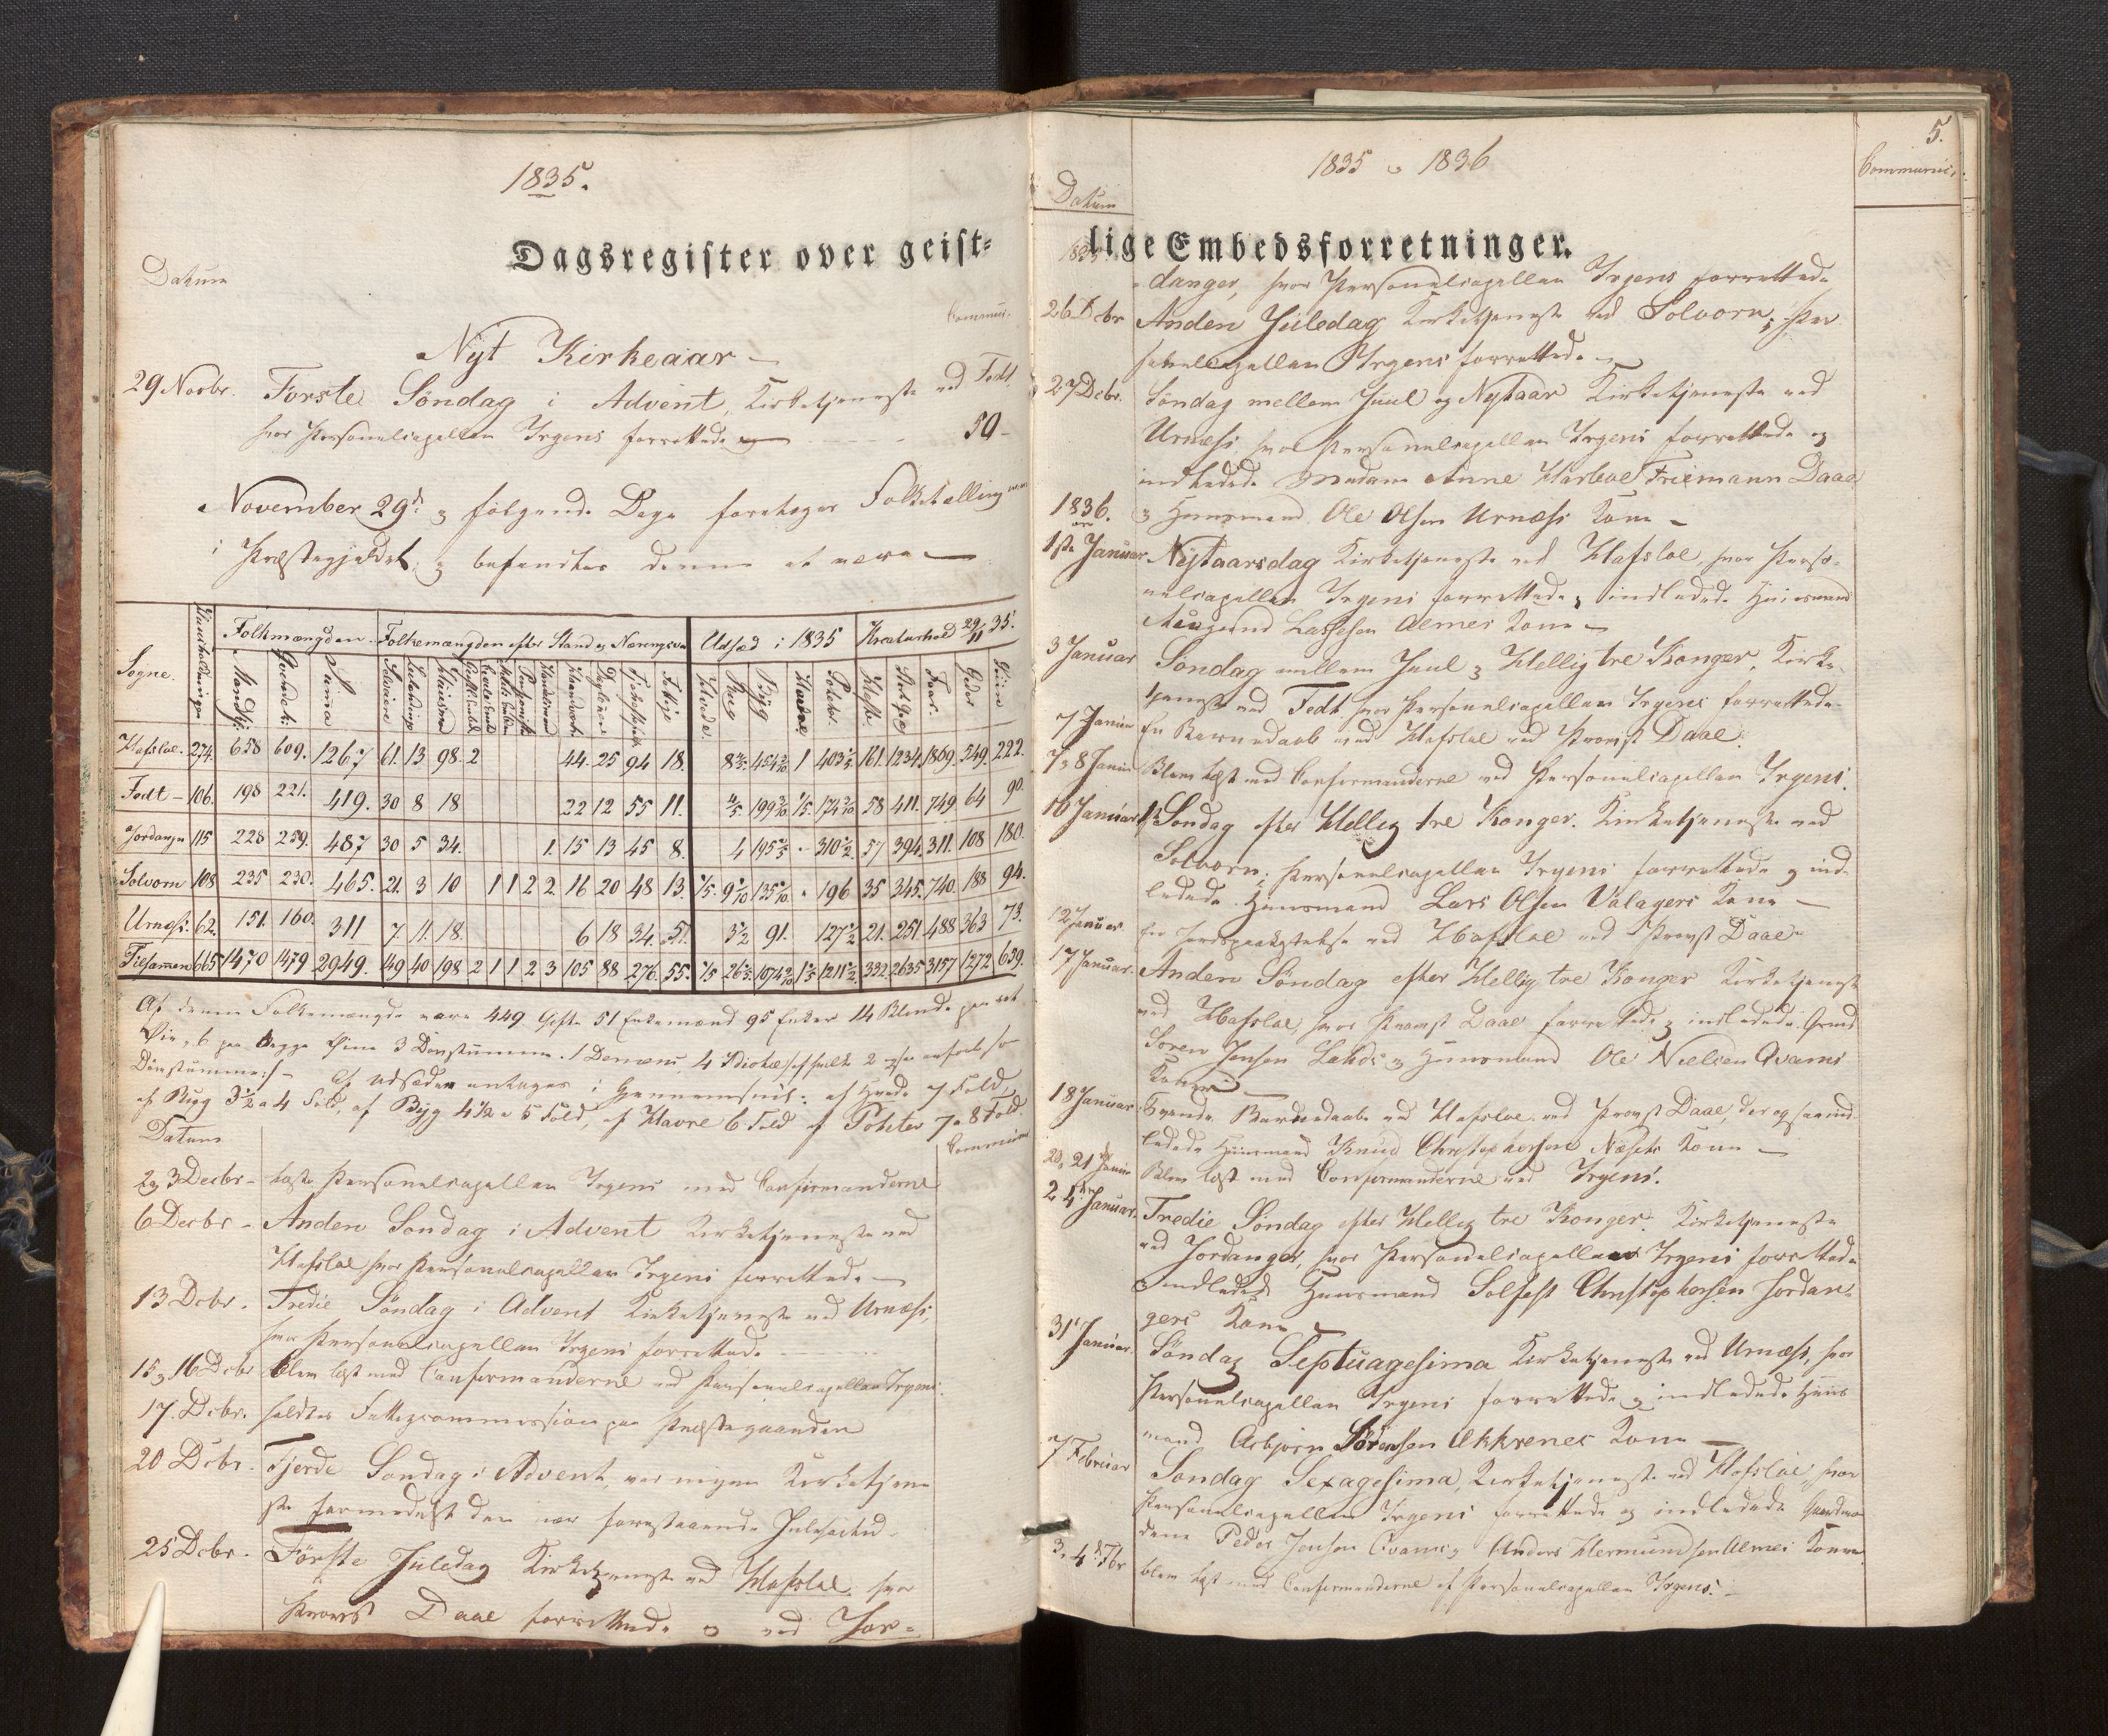 1835.
Dagsregister over geist=
Datum
Commun.
Nyt Kirkeaar
29 Novbr. Første Søndag i Advent, Kirketjeneste ved Fedt,
hvor Personelcapellan Irgens forrettede og 59-
November 29d. og følgende Dage foretoges Folketælling
i Præstegjeldet, og befandtes denne at være
Sogne. Huusholdninger Folkmængden. Folkemængden efter Stand og Næringsv. Udsæd i 1835 Kreaturhold 29/11 35.
Mandkj. Qvindek. Summa Hvede. Rug Byg Havre Poteter. Heste. Faar. Geder Sviin
Hafsloe. 274. 658 609. 1267 61. 13 98. 2 44. 25 94 18. 8 3/5. 454 3/10 1 403 1/2. 161. 1234. 1869. 549. 222.
Fedt - 106. 198 221. 419. 30 8 18 22 12 55 11. 4/5. 199 3/10 1/5. 174 3/10 58 411. 749 64 90.
Jordanger 115 228 259. 487 30 5 34. 1. 15 13 45 8. 4 195 4/5 - 310 1/2. 57 394. 311. 108 180.
Solvorn 108 235 230. 465. 21. 3 10 1 1 2 2 16 20 48 13. 1/5. 9 7/10 135 9/10. - 196 35 345. 740. 188 94.
Urnæs. 62. 151. 160. 311 7. 11. 18. 6 18 34. 5. 3 1/2 91. 127 1/2 21. 251. 488 363 73.
Tilsamen 665 1470 1479 2949. 149 40 198 2 1 1 2 3 105 88 276. 55. 1/5 26 3/5. 1074 2/10 1 2/5 1211 1/2 332. 2635 3157 1272 659.
Af denne Folkemængde vare 449 Gifte 51 Enkemænd 95 Enker 14 Blinde paa et
Øie, 6 paa begge Øine 3 Døvstumme. 1 Demens, 4 Idioter
Døvstumme:/- Af Udsæden antages i Gjennemsnit: af Hvede 7 Fold,
af Rug 3 1/2 a 4 Fold, af Byg 4 1/2 a 5 Fold, af Havre 6 Fold af Poteter 7 a 8 Fold.
Datum
Commun
2 og 3 Decbr - læste Personelcapellan Irgens med Confirmanderne
6 Decbr - Anden Søndag i Advent Kirketjeneste ved
Hafsloe hvor Personelcapellan Irgens forrettede
13 Dcbr. Tredie Søndag i Advent Kirketjeneste ved Urnæs,
hvor Personelcapellan Irgens forrettede
15 og 16 Dcbr blev læst med Confirmanderne ved Personelcapellan Irgens.
17. Dcbr. holdtes Fattigcommission paa Præstegaarden
20 Dcbr. Fjerde Søndag i Advent, var ingen Kirketjene
ste formedelst den nær forestaaende Julehøitid.
25 Dcbr. Første Juledag Kirketjeneste ved Hafsloe hvor
Provst Daae forrettede og ved Jor=
5.
Communic.
1835 og 1836
Datum
lige Embedsforretninger.
1835
danger, hvor Personelcapellan Irgens forrettede
26 Dcbr Anden Juledag Kirketjeneste ved Solvorn; Per
sonelcapellan Irgens forrettede
27 Dcbr. Søndag mellem Juul og Nytaar Kirketjeneste ved
Urnæs, hvor Personelcapellan Irgens forrettede og
indledede Madam Anne Marloe Friemann Daae
1836. og Huusmand Ole Olsen Urnæs Kone -
1ste Januar Nytaarsdag Kirketjeneste ved Hafsloe, hvor Perso-
nelcapellan Irgens forrettede og indledede Huusmand
Lassesen Almes Kone
3 Januar Søndag mellem Juul og Hellig tre Konger. Kirke-
tjeneste ved Fedt hvor Personelcapellan Irgens forrettede.
7 Januar En Barnedaab ved Hafsloe ved Provst Daae.
7 og 8 Januar Blev læst med Confirmanderne ved Personelcapellan Irgens.
10 Januar 1. Søndag efter Hellig tre Konger. Kirketjeneste ved
Solvorn; Personelcapellan Irgens forrettede og ind
ledede Huusmand Lars Olsen Valagers Kone -
12 Januar. En Jordspaakastelse ved Hafsloe ved Provst Daae
17 Januar. Anden Søndag efter Hellig tre Konger Kirketjeneste
ved Hafsloe, hvor Provst Daae forrettede og indledede Grmd
Søren Jensen Lahds og Huusmand Ole Nielsen Qvams
Koner -
18 Januar. Tvende Barnedaabe ved Hafsloe ved Provst Daae, der ogsaa ind-
ledede Huusmand Knud Christophersen Næsets Kone -
20, 21 Januar Blev læst med Confirmanderne ved Irgens.
24 Januar. Tredie Søndag efter Hellig tre Konger. Kirketjeneste
ved Jordanger, hvor Personelcapellan Irgens forrettede
og indledede Huusmand Solfest Christophersen Jordan-
gers Kone
31 Januar. Søndag Septuagesima Kirketjeneste ved Urnæs, hvor
Personelcapellan Irgens forrettede og indledede Huus
mand Asbjørn Sørensen Ækkrenes Kone -
7 Februar Søndag Sexagesima, Kirketjeneste ved Hafsloe hvor
Personelcapellan Irgens forrettede og indledede Gaardmæn
dene Peder Jensen Qvams og Anders Hermundsen Almes Koner
3, 4 Fbr blev læst med Confirmanderne af Personelcapellan Irgens. -